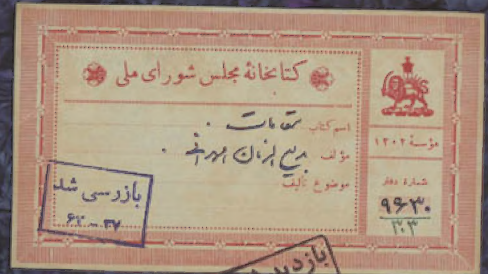 کتابخانهٔ مجلس شورای ملی
اسم کتاب مقامات
مؤلف بدیع الزمان همدانی
موضوع تألیف
مؤسسهٔ ۱۳۰۲
شمارهٔ دفتر
۹۶۳۰
۳۰۳
بازرسی شد
۳۷ - ۶۳